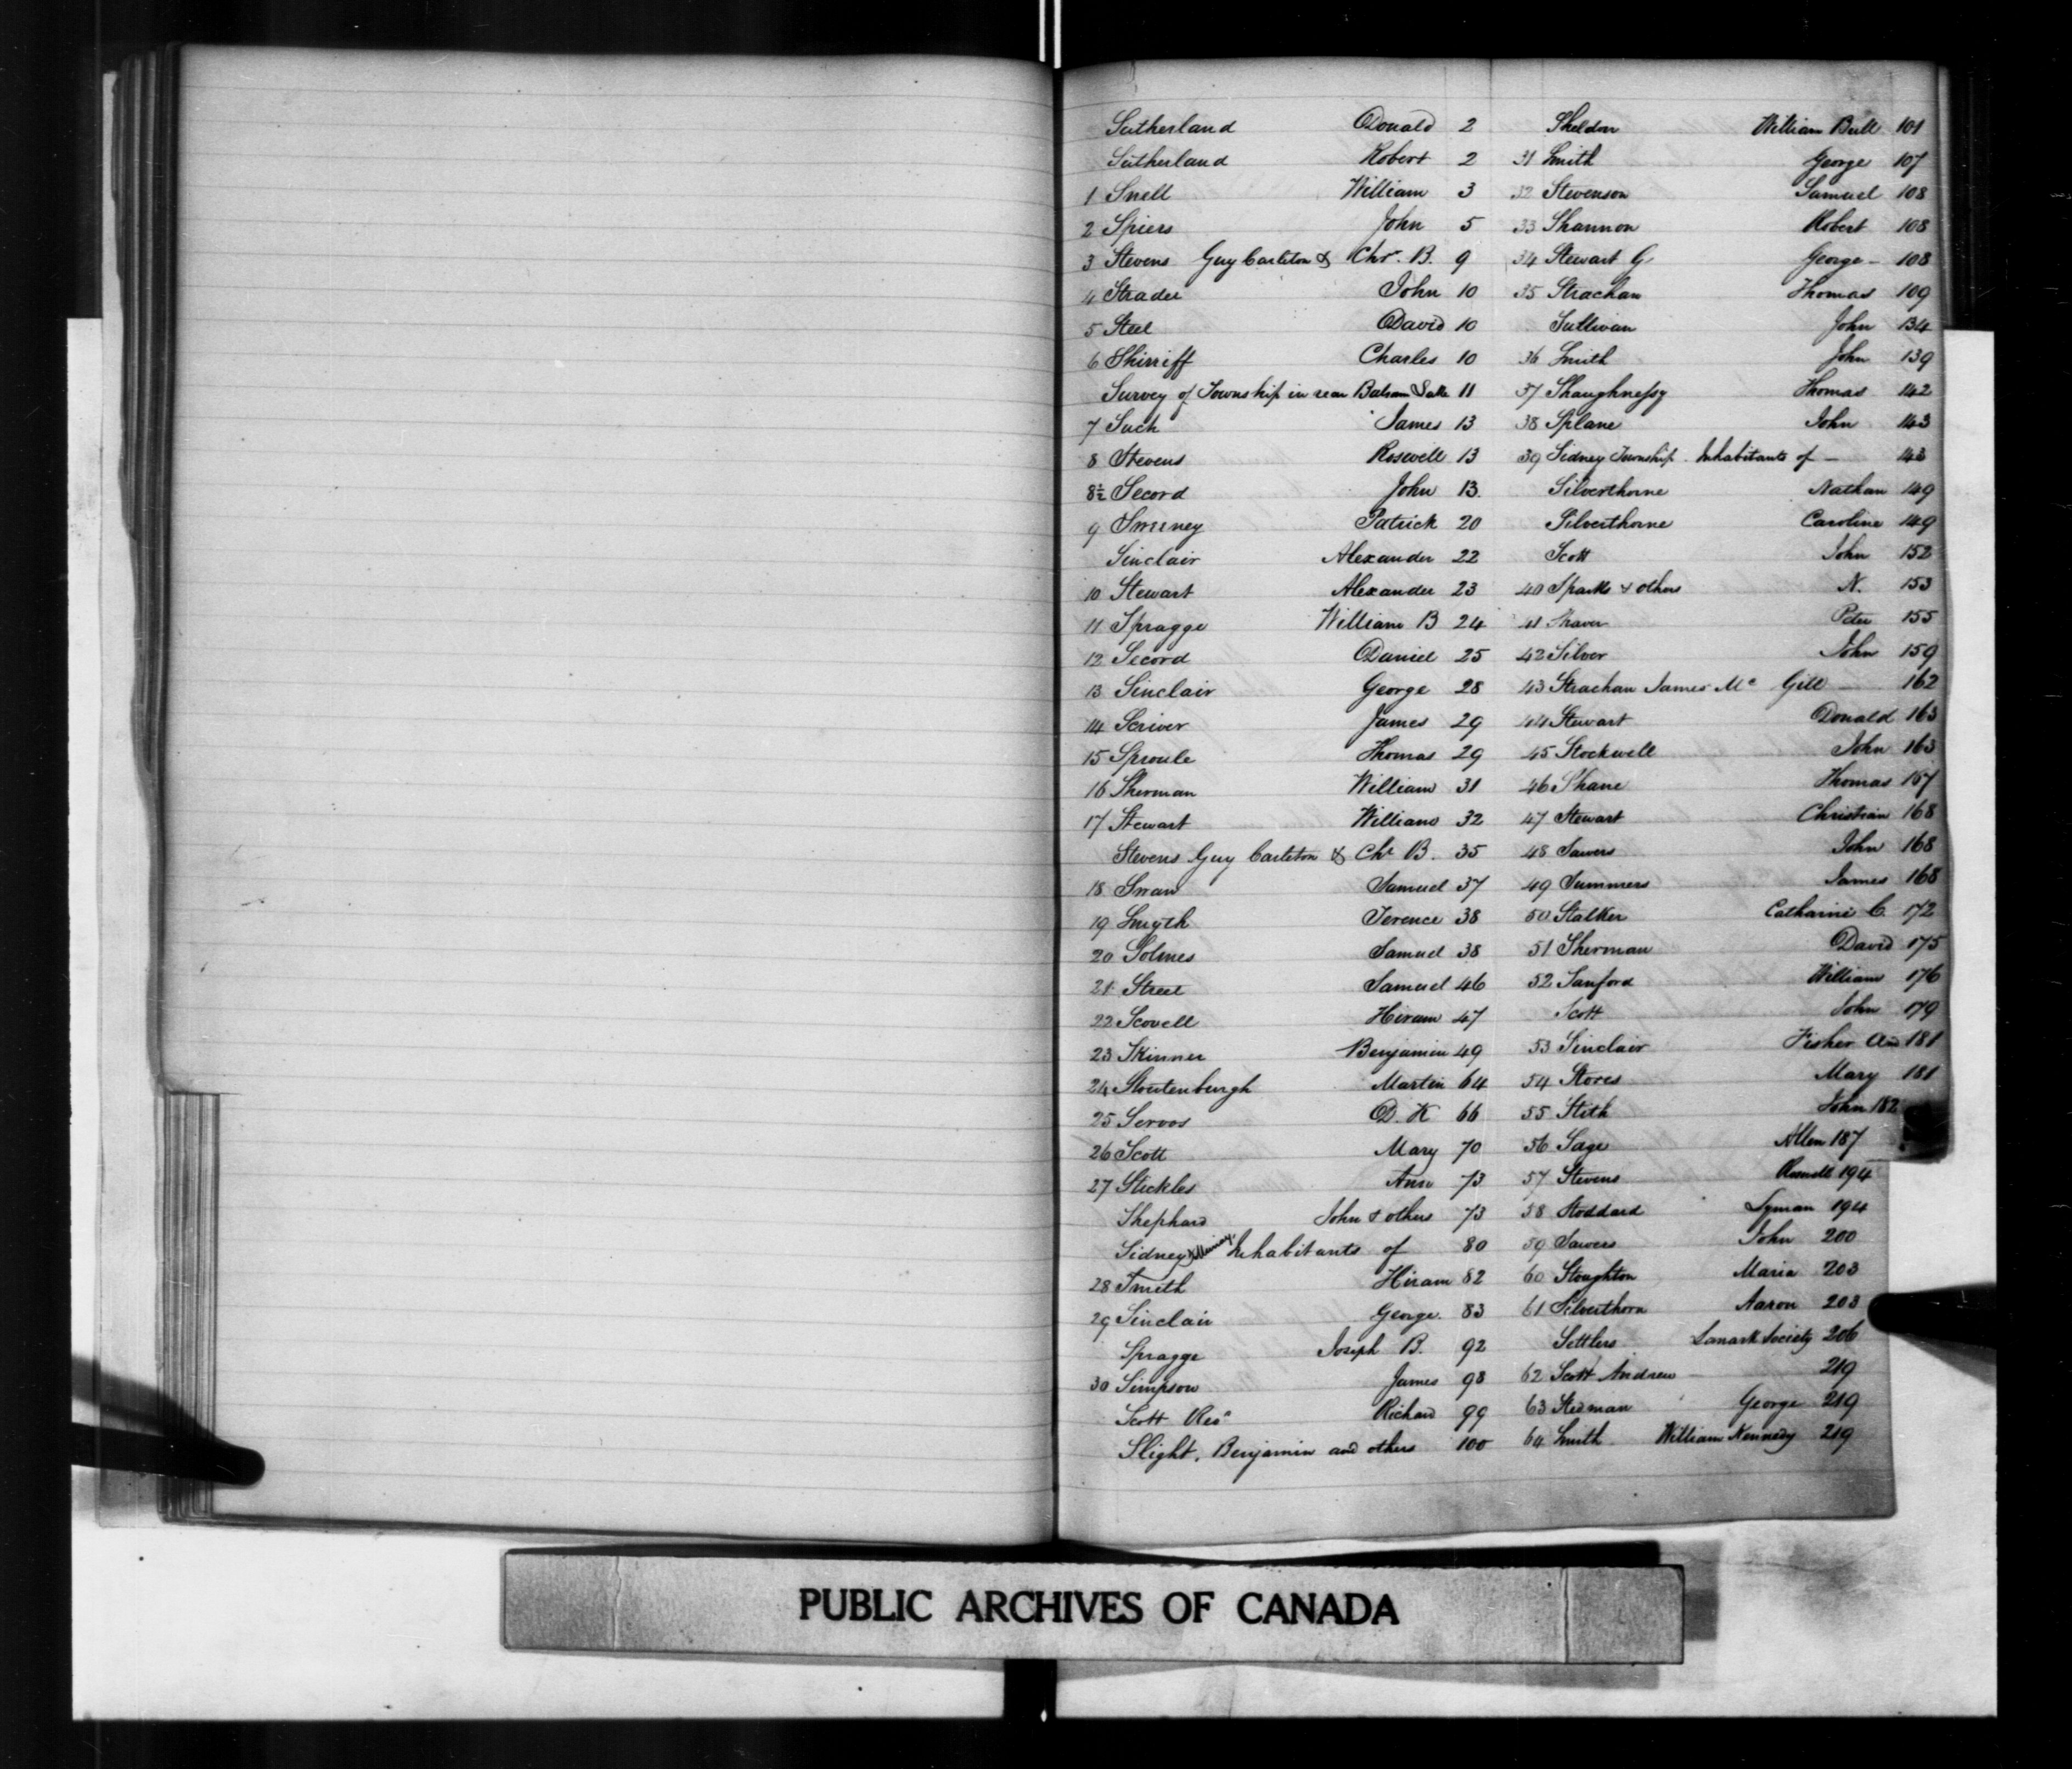 Sutherland Donald 2
Sutherland Robert 2
1 Snell William 3
2 Spiers John 5
3 Stevens Guy Carleton & Chr. B. 9
4 Strader John 10
5 Steel David 10
6 Shirriff Charles 10
Survey of Township in rear Balsam Lake 11
7 Such James 13
8 Stevens Rosewell 13
8½ Secord John 13.
9 Sweeney Patrick 20
Sinclair Alexander 22
10 Stewart Alexander 23
11 Spragge William B 24
12 Secord Daniel 25
13 Sinclair George 28
14 Scriver James 29
15 Sproule Thomas 29
16 Sherman William 31
17 Stewart William 32
Stevens Guy Carleton & Chr B. 35
18 Swan Samuel 37
19 Smyth Terence 38
20 Solmes Samuel 38
21 Street Samuel 46
22 Scovell Hiram 47
23 Skinner Benjamin 49
24 Stoutenburgh Martin 64
25 Servos D. K 66
26 Scott Mary 70
27 Stickles Ann 73
Shephard John & others 73
Sidney & Murray Inhabitants of 80
28 Smith Hiram 82
29 Sinclair George. 83
Spragge Joseph B. 92
30 Simpson James 98
Scott Richard 99
Slight, Benjamin and others 100
Sheldon William Bull 101
31 Smith George 107
32 Stevenson Samuel 108
33 Shannon Robert 108
34 Stewart G George - 108
35 Strachan Thomas 109
Sullivan John 134
36 Smith John 139
37 Shaughnessy Thomas 142
38 Splane John 143
39 Sidney Township Inhabitants of - 143
Silverthorne Nathan 149
Silverthorne Caroline 149
Scott John 152
40 Sparks & others N. 153
41 Shaver Peter 155
42 Silver John 159
43 Strachan James Mc Gill - 162
44 Stewart Donald 163
45 Stockwell John 163
46 Shane Thomas 167
47 Stewart Christian 168
48 Sawers John 168
49 Summers James 168
50 Stalker Catharine C. 172
51 Sherman David 175
52 Sanford William 176
Scott John 179
53 Sinclair Fisher Ann 181
54 Stores Mary 181
55 Stith John 182
56 Sage Allen 187
57 Stevens Roswell 194
58 Stoddard Lyman 194
59 Sawers John 200
60 Stoughton Maria 203
61 Silverthorn Aaron 203
Settlers Lanark Society 206
62 Scott Andrew - 219
63 Stedman George 219
64 Smith William Kennedy 219
PUBLIC ARCHIVES OF CANADA